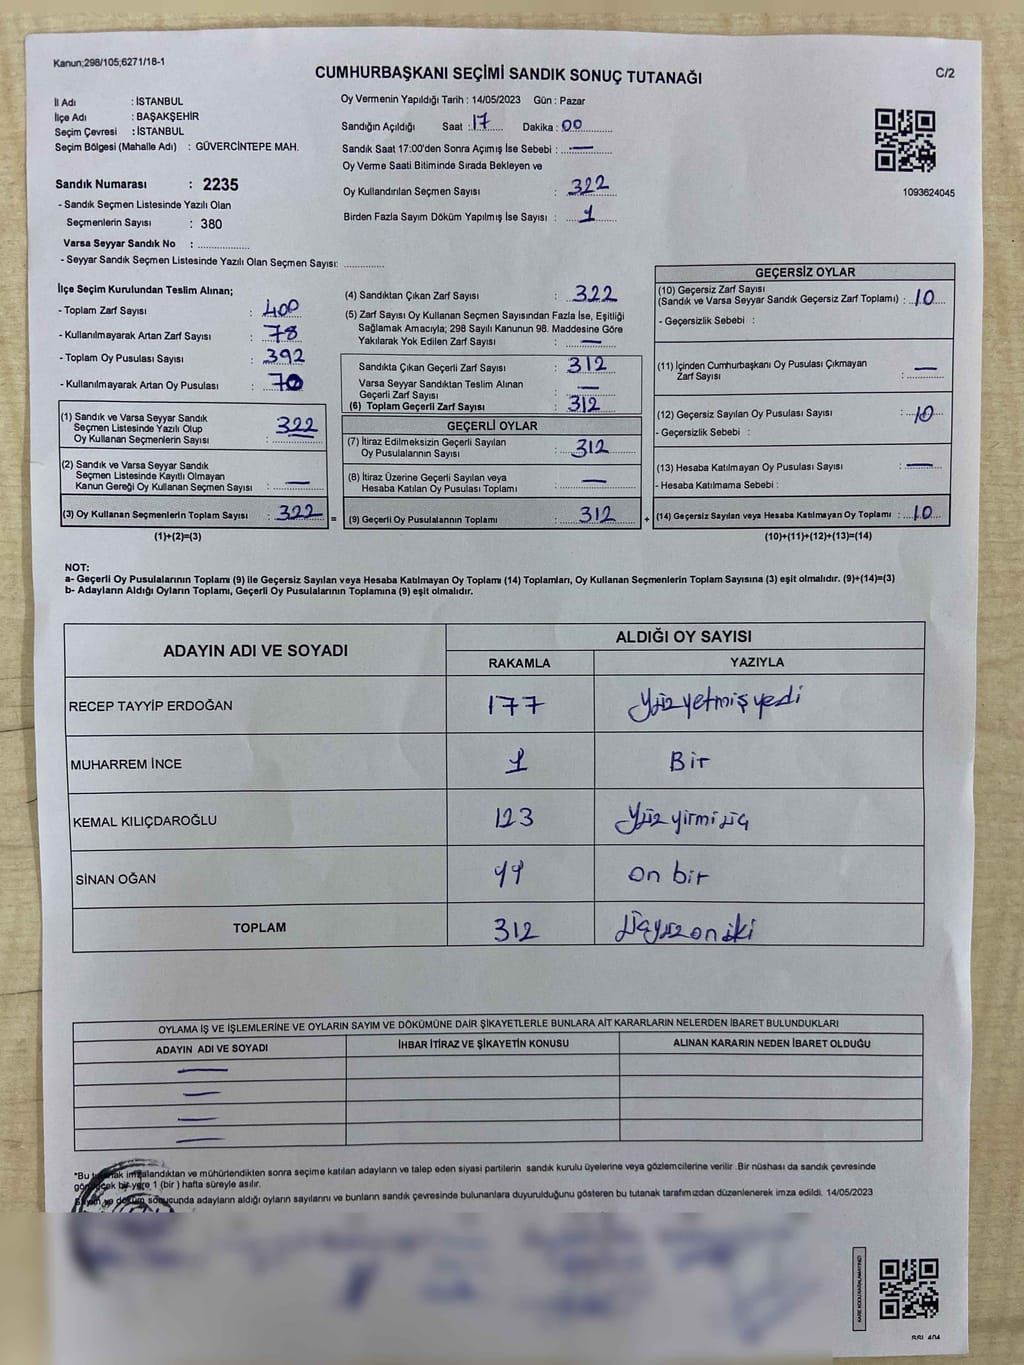 Kanun;298/105;6271/18-1
CUMHURBAŞKANI SEÇİMİ SANDIK SONUÇ TUTANAĞI
C/2
İl Adı : İSTANBUL
İlçe Adı : BAŞAKŞEHİR
Seçim Çevresi : İSTANBUL
Seçim Bölgesi (Mahalle Adı) : GÜVERCİNTEPE MAH.
Sandık Numarası : 2235
- Sandık Seçmen Listesinde Yazılı Olan
Seçmenlerin Sayısı : 380
Varsa Seyyar Sandık No : ................
- Seyyar Sandık Seçmen Listesinde Yazılı Olan Seçmen Sayısı: .............
Oy Vermenin Yapıldığı Tarih : 14/05/2023 Gün : Pazar
Sandığın Açıldığı Saat : 17 Dakika : 00
Sandık Saat 17:00'den Sonra Açımış İse Sebebi : —
Oy Verme Saati Bitiminde Sırada Bekleyen ve
Oy Kullandırılan Seçmen Sayısı : 322
Birden Fazla Sayım Döküm Yapılmış İse Sayısı : 1
1093624045
İlçe Seçim Kurulundan Teslim Alınan;
- Toplam Zarf Sayısı : 400
- Kullanılmayarak Artan Zarf Sayısı : 78
- Toplam Oy Pusulası Sayısı : 392
- Kullanılmayarak Artan Oy Pusulası : 70
(1) Sandık ve Varsa Seyyar Sandık
Seçmen Listesinde Yazılı Olup
Oy Kullanan Seçmenlerin Sayısı : 322
(2) Sandık ve Varsa Seyyar Sandık
Seçmen Listesinde Kayıtlı Olmayan
Kanun Gereği Oy Kullanan Seçmen Sayısı : —
(3) Oy Kullanan Seçmenlerin Toplam Sayısı : 322 =
(1)+(2)=(3)
(4) Sandıktan Çıkan Zarf Sayısı : 322
(5) Zarf Sayısı Oy Kullanan Seçmen Sayısından Fazla İse, Eşitliği
Sağlamak Amacıyla; 298 Sayılı Kanunun 98. Maddesine Göre
Yakılarak Yok Edilen Zarf Sayısı : —
Sandıkta Çıkan Geçerli Zarf Sayısı : 312
Varsa Seyyar Sandıktan Teslim Alınan
Geçerli Zarf Sayısı : —
(6) Toplam Geçerli Zarf Sayısı : 312
GEÇERLİ OYLAR
(7) İtiraz Edilmeksizin Geçerli Sayılan
Oy Pusulalarının Sayısı : 312
(8) İtiraz Üzerine Geçerli Sayılan veya
Hesaba Katılan Oy Pusulası Toplamı : —
(9) Geçerli Oy Pusulalarının Toplamı : 312 +
GEÇERSİZ OYLAR
(10) Geçersiz Zarf Sayısı
(Sandık ve Varsa Seyyar Sandık Geçersiz Zarf Toplamı) : 10
- Geçersizlik Sebebi :
(11) İçinden Cumhurbaşkanı Oy Pusulası Çıkmayan
Zarf Sayısı : —
(12) Geçersiz Sayılan Oy Pusulası Sayısı : 10
- Geçersizlik Sebebi :
(13) Hesaba Katılmayan Oy Pusulası Sayısı : —
- Hesaba Katılmama Sebebi :
(14) Geçersiz Sayılan veya Hesaba Katılmayan Oy Toplamı : 10
(10)+(11)+(12)+(13)=(14)
NOT:
a- Geçerli Oy Pusulalarının Toplamı (9) ile Geçersiz Sayılan veya Hesaba Katılmayan Oy Toplamı (14) Toplamları, Oy Kullanan Seçmenlerin Toplam Sayısına (3) eşit olmalıdır. (9)+(14)=(3)
b- Adayların Aldığı Oyların Toplamı, Geçerli Oy Pusulalarının Toplamına (9) eşit olmalıdır.
ADAYIN ADI VE SOYADI
ALDIĞI OY SAYISI
RAKAMLA YAZIYLA
RECEP TAYYİP ERDOĞAN 177 Yüz yetmiş yedi
MUHARREM İNCE 1 Bir
KEMAL KILIÇDAROĞLU 123 Yüz yirmi üç
SİNAN OĞAN 11 On bir
TOPLAM 312 Üçyüz on iki
OYLAMA İŞ VE İŞLEMLERİNE VE OYLARIN SAYIM VE DÖKÜMÜNE DAİR ŞİKAYETLERLE BUNLARA AİT KARARLARIN NELERDEN İBARET BULUNDUKLARI
ADAYIN ADI VE SOYADI İHBAR İTİRAZ VE ŞİKAYETİN KONUSU ALINAN KARARIN NEDEN İBARET OLDUĞU
*Bu tutanak imzalandıktan ve mühürlendikten sonra seçime katılan adayların ve talep eden siyasi partilerin sandık kurulu üyelerine veya gözlemcilerine verilir .Bir nüshası da sandık çevresinde
görülecek bir yere 1 (bir ) hafta süreyle asılır.
Sayım ve döküm sonucunda adayların aldığı oyların sayılarını ve bunların sandık çevresinde bulunanlara duyurulduğunu gösteren bu tutanak tarafımızdan düzenlenerek imza edildi. 14/05/2023